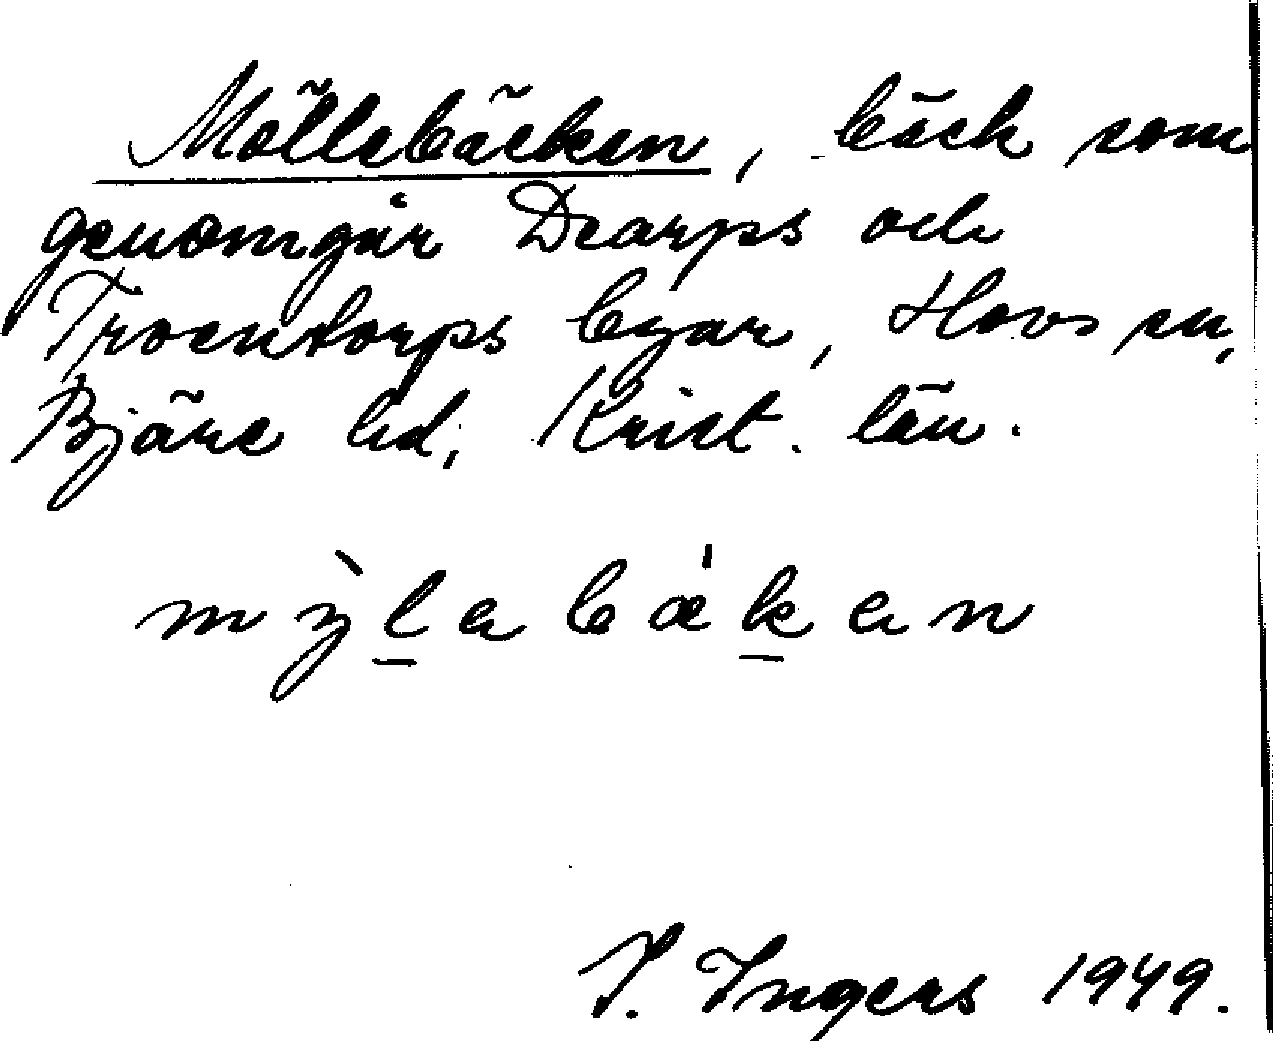 Möllebäcken, bäck som
genomgår Dearps och
Troentorps byar, Hovs sn,
Bjäre hd, Krist. län.
mỳlabækan
I. Ingers 1949.